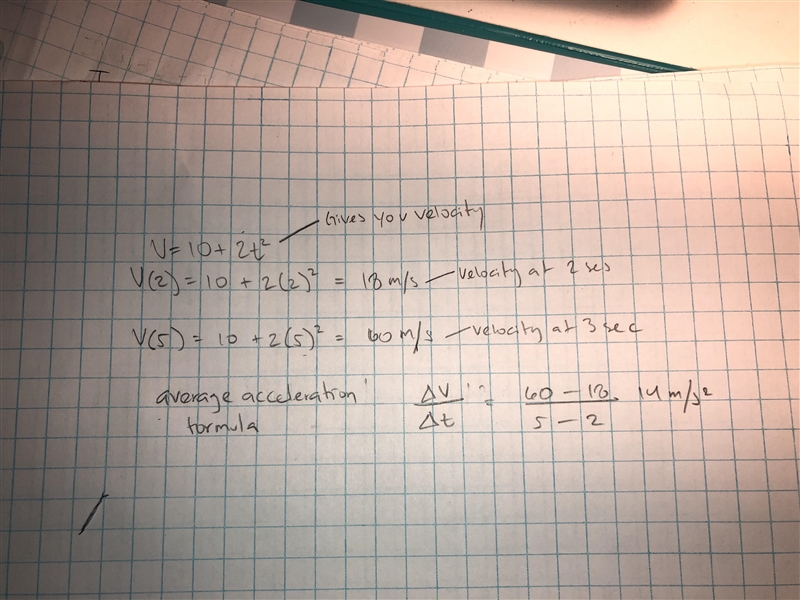 Gives you velocity
V = 10 + 2t²
V(2) = 10 + 2(2)² = 18 m/s – velocity at 2 sec
V(5) = 10 + 2(5)² = 60 m/s – velocity at 3 sec
average acceleration ΔV = 60 – 18 14 m/s²
formula Δt 5 – 2